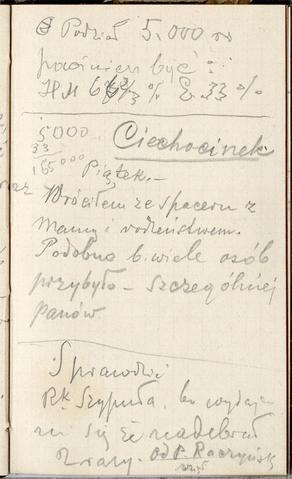 Podział 5.000 na
powinien być:
HM 66 2/3 % E. 33 %
5000
33
165000
Ciechocinek
Piątek.—
Wróciłem ze spaceru z
Mamą i rodzeństwem.
Podobno b. wiele osób
przybyło — szczególniej
panów
Sprawdzić
Rk. Szypuła, bo wydaje
mi się że nadebrał
2 razy. Od P. Raczyńsk